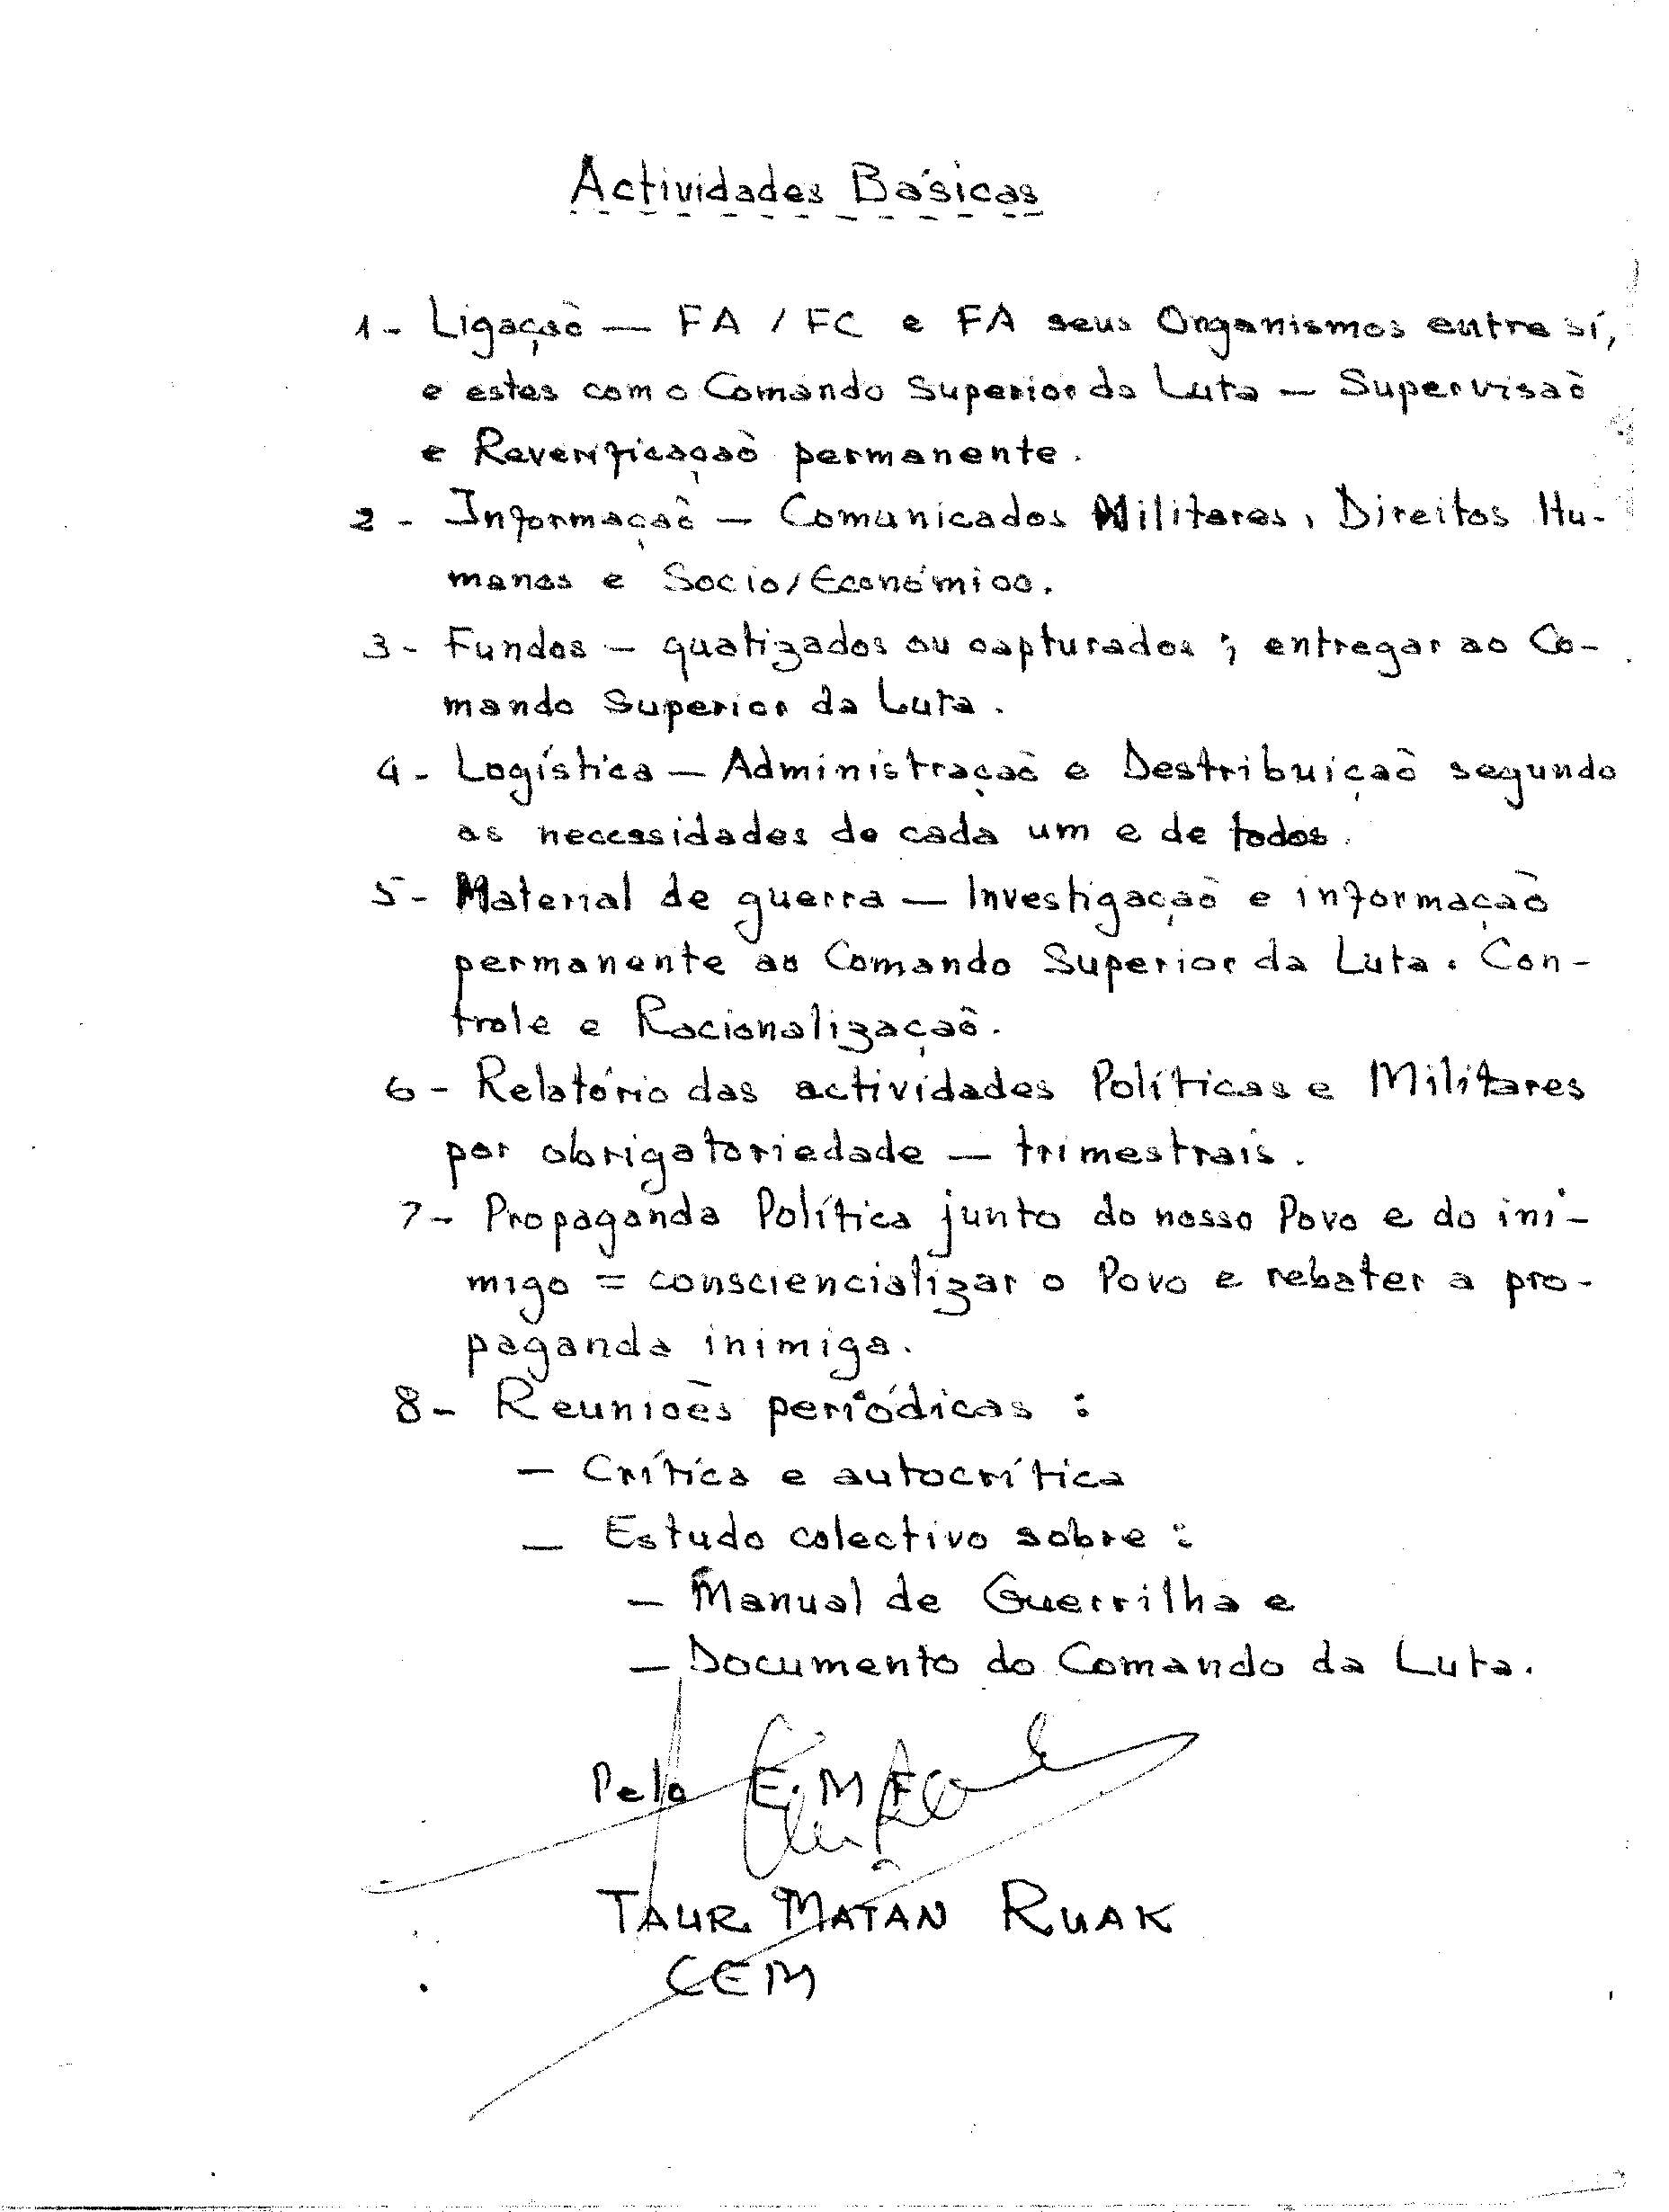 Actividades Básicas
1 - Ligação — FA / FC e FA seus Organismos entre sí,
e estes com o Comando Superior da Luta — Supervisaõ
e Reverificaçaõ permanente.
2 - Informaçaõ — Comunicados Militares, Direitos Hu-
manos e Socio/Económico.
3 - Fundos — quatizados ou capturados ; entregar ao Co-
mando Superior da Luta.
4 - Logística — Administraçaõ e Destribuiçaõ segundo
as necessidades de cada um e de todos.
5 - Material de guerra — Investigaçaõ e informaçaõ
permanente ao Comando Superior da Luta. Con-
trole e Racionalizaçaõ.
6 - Relatório das actividades Políticas e Militares
por obrigatoriedade — trimestrais.
7 - Propaganda Política junto do nosso Povo e do ini-
migo = consciencializar o Povo e rebater a pro-
paganda inimiga.
8 - Reunioẽs periódicas :
— Crítica e autocrítica
— Estudo colectivo sobre :
— Manual de Guerrilha e
— Documento do Comando da Luta.
Pelo E.M.F.
TAUR MATAN RUAK
CEM